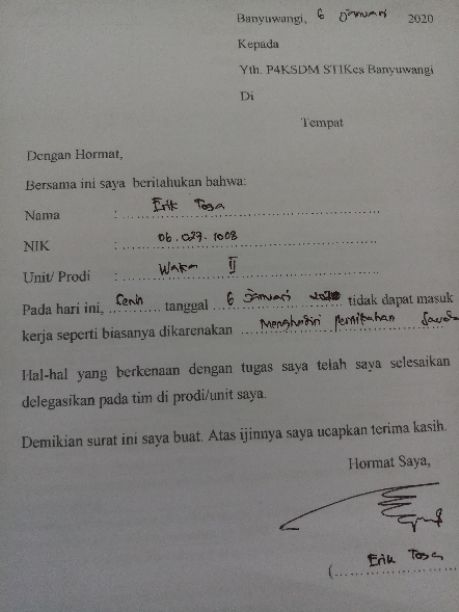 Banyuwangi, 6 Januari 2020
Kepada
Yth. P4KSDM STIKes Banyuwangi
Di
Tempat
Dengan Hormat,
Bersama ini saya beritahukan bahwa:
Nama : Erik Toga
NIK : 06.027.1008
Unit/ Prodi : Waka II
Pada hari ini, Senin tanggal 6 Januari 2020 tidak dapat masuk
kerja seperti biasanya dikarenakan Menghadiri pernikahan
Hal-hal yang berkenaan dengan tugas saya telah saya selesaikan
delegasikan pada tim di prodi/unit saya.
Demikian surat ini saya buat. Atas ijinnya saya ucapkan terima kasih.
Hormat Saya,
Erik Toga
(